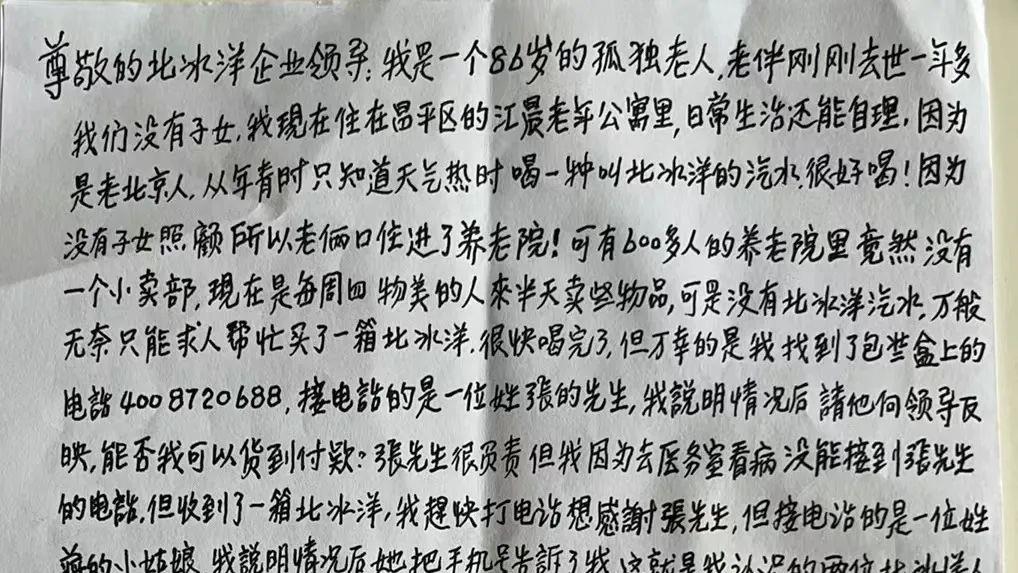 尊敬的北冰洋企业领导:我是一个86岁的孤独老人,老伴刚刚去世一年多
我们没有子女,我現在住在昌平区的江晨老年公寓里,日常生活还能自理.因为
是老北京人,从年青时只知道天气热时喝一种叫北冰洋的汽水,很好喝!因为
没有子女照顧所以老俩口住进了养老院!可有600多人的养老院里竟然没有
一个小卖部,現在是每周四物美的人來半天卖些物品,可是没有北冰洋汽水,万般
无奈只能求人帮忙买了一箱北冰洋.很快喝完了,但万幸的是我找到了包装盒上的
电話4008720688,接电話的是一位姓張的先生,我説明情况后請他向领导反
映,能否我可以货到付款?張先生很负责但我因为去医务室看病没能接到張先生
的电話,但收到了一箱北冰洋,我趕快打电话想感謝張先生,但接电话的是一位姓
的小姑娘 我説明情况后她把手机号告訴了我 这就是我认识的两位北冰洋人